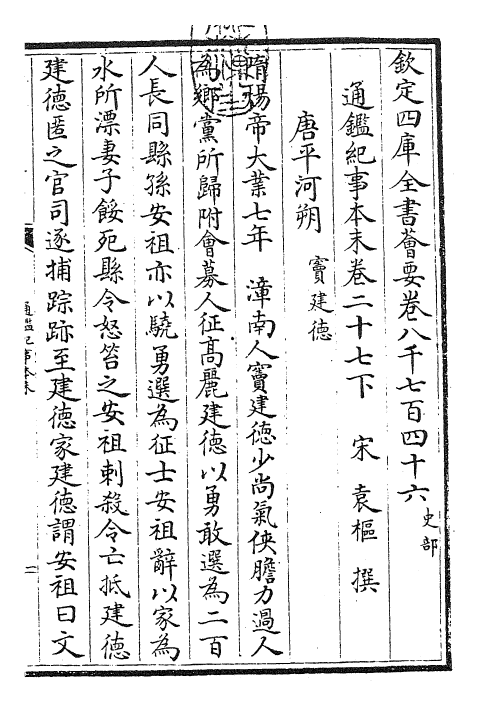 欽定四庫全書薈要卷八千七百四十六 史部
通鑑紀事本末卷二十七下 宋 袁樞 撰
唐平河朔 竇建德
隋煬帝大業七年 漳南人竇建德少尚氣俠膽力過人
為鄉黨所歸附會募人征髙麗建德以勇敢選為二百
人長同縣孫安祖亦以驍勇選為征士安祖辭以家為
水所漂妻子餒死縣令怒笞之安祖刺殺令亡抵建德
建德匿之官司逐捕踪跡至建德家建德謂安祖曰文
通鑑紀事本末
一